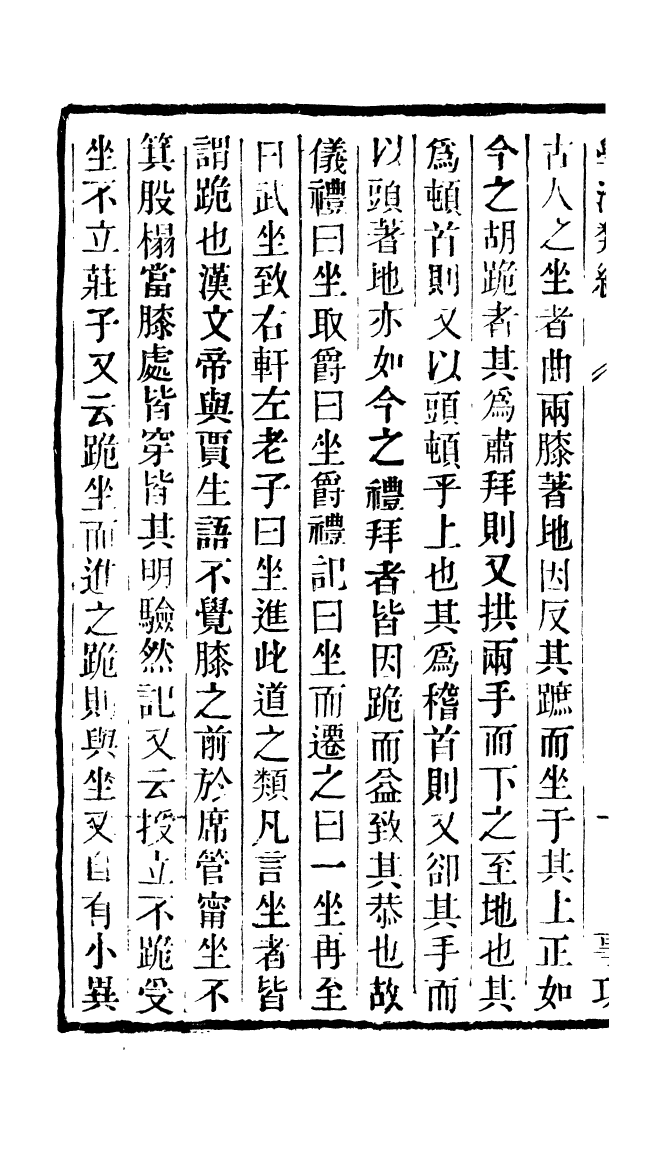 學海類編
古人之坐者曲兩膝著地因反其蹠而坐于其上正如
今之胡跪者其爲肅拜則又拱兩手而下之至地也其
爲頓首則又以頭頓乎上也其爲稽首則又卻其手而
以頭著地亦如今之禮拜者皆因跪而益致其恭也故
儀禮曰坐取爵曰坐爵禮記曰坐而遷之曰一坐再至
曰武坐致右軒左老子曰坐進此道之類凡言坐者皆
謂跪也漢文帝與賈生語不覺膝之前於席管甯坐不
箕股榻當膝處皆穿皆其明驗然記又云授立不跪受
坐不立莊子又云跪坐而進之跪則與坐又自有小異